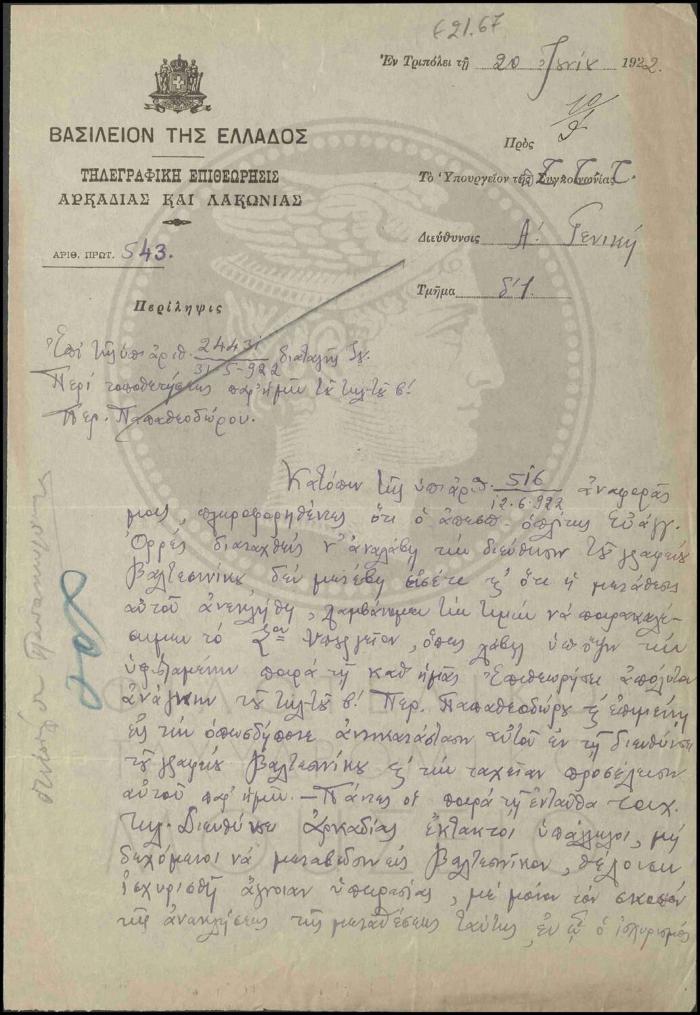 ε21.67
Ἐν Τριπόλει τῇ 20 Ἰουνίου 1922.
10/9
ΒΑΣΙΛΕΙΟΝ ΤΗΣ ΕΛΛΑΔΟΣ
ΤΗΛΕΓΡΑΦΙΚΗ ΕΠΙΘΕΩΡΗΣΙΣ
ΑΡΚΑΔΙΑΣ ΚΑΙ ΛΑΚΩΝΙΑΣ
ΑΡΙΘ. ΠΡΩΤ. 543.
Πρὸς
Τὸ Ὑπουργεῖον τῆς Συγκοινωνίας Τ.Τ.Τ.
Διεύθυνσις Α! Γενική
Τμῆμα δ'1
Περίληψις
Ἐπὶ τῆς ὑπ' ἀριθ. 24431/31-5-922 διαταγῆς
Περὶ τοποθετήσεως παρ' ἡμῖν τοῦ τηλ-τοῦ β!
Περ. Παπαθεοδώρου.
Κατόπιν τῆς ὑπ' ἀριθ. 516/12-6-922 ἀναφορᾶς
μας, πληροφορηθέντες ὅτι ὁ ἀπεσπ. ὁπλίτης Εὐάγγ.
Ὀρρές διαταχθεὶς ν' ἀναλάβῃ τὴν διεύθυνσιν τοῦ γραφείου
Βαλτεσινίκου δὲν μετέβη εἰσέτι ὅτι ἡ μετάθεσις
αὐτοῦ ἀνεκλήθη, λαμβάνομεν τὴν τιμὴν νὰ παρακαλέ-
σωμεν τὸ Σον Ὑπουργεῖον, ὅπως λάβῃ ὑπ' ὄψιν τὴν
ὑφισταμένην παρὰ τῇ καθ' ἡμᾶς Ἐπιθεωρήσει ἀπόλυτον
ἀνάγκην τοῦ τηλ-τοῦ β! Περ. Παπαθεοδώρου ἐπιμείνῃ
εἰς τὴν ὁπωσδήποτε ἀντικατάστασιν αὐτοῦ ἐν τῇ διευθύνσει
τοῦ γραφείου Βαλτεσινίκου τὴν ταχεῖαν προσέλευσιν
αὐτοῦ παρ' ἡμῖν. — Πάντες οἱ παρὰ τῇ ἐνταῦθα
Τηλ. Διευθύνσει Ἀρκαδίας ἔκτακτοι ὑπάλληλοι, μὴ
δεχόμενοι νὰ μεταβῶσιν εἰς Βαλτεσινίκον, θέλουσιν
ἰσχυρισθῆ ἄγνοιαν ὑπηρεσίας, μὲ μόνον τὸν σκοπὸν
τῆς ἀνακλήσεως τῆς μεταθέσεως ταύτης, ἐν ᾧ ὁ ἰσχυρισμός